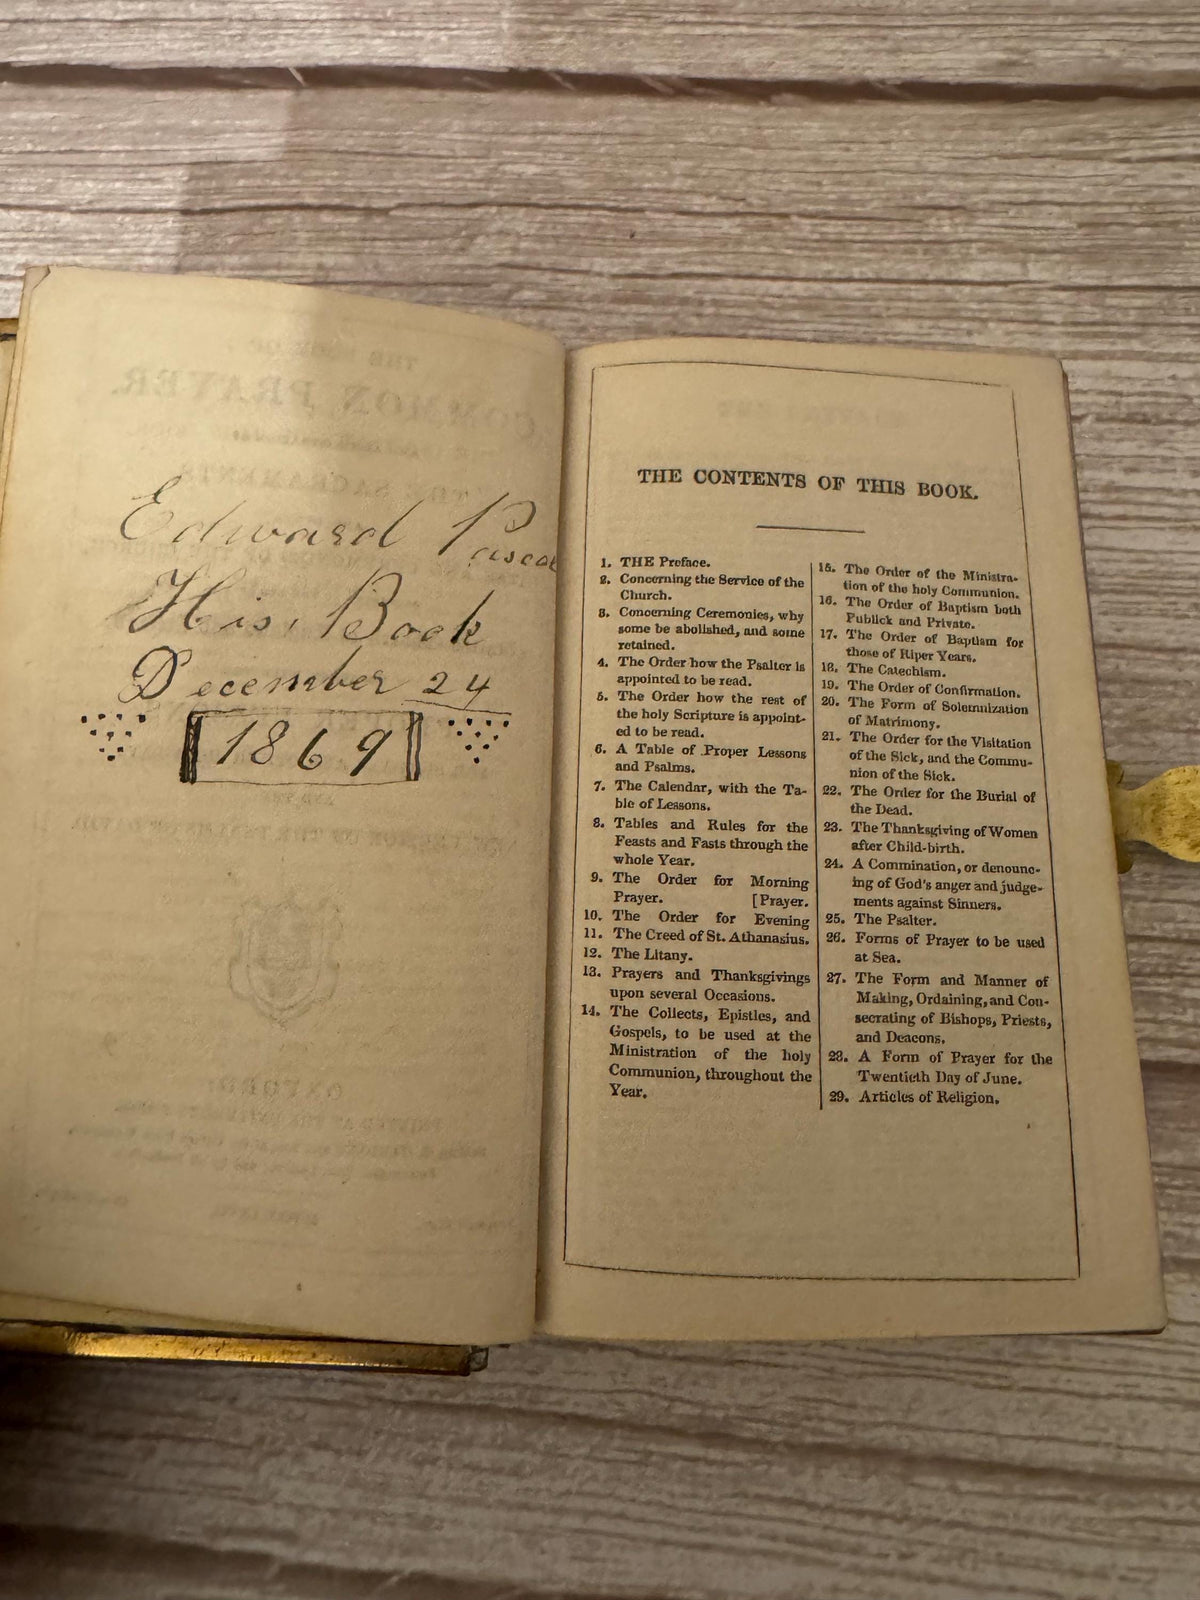 Edward
His Book
December 24
1869
THE CONTENTS OF THIS BOOK.
1. THE Preface.
2. Concerning the Service of the
Church.
3. Concerning Ceremonies, why
some be abolished, and some
retained.
4. The Order how the Psalter is
appointed to be read.
5. The Order how the rest of
the holy Scripture is appoint-
ed to be read.
6. A Table of Proper Lessons
and Psalms.
7. The Calendar, with the Ta-
ble of Lessons.
8. Tables and Rules for the
Feasts and Fasts through the
whole Year.
9. The Order for Morning
Prayer. [Prayer.
10. The Order for Evening
11. The Creed of St. Athanasius.
12. The Litany.
13. Prayers and Thanksgivings
upon several Occasions.
14. The Collects, Epistles, and
Gospels, to be used at the
Ministration of the holy
Communion, throughout the
Year.
15. The Order of the Ministra-
tion of the holy Communion.
16. The Order of Baptism both
Publick and Private.
17. The Order of Baptism for
those of Riper Years.
18. The Catechism.
19. The Order of Confirmation.
20. The Form of Solemnization
of Matrimony.
21. The Order for the Visitation
of the Sick, and the Commu-
nion of the Sick.
22. The Order for the Burial of
the Dead.
23. The Thanksgiving of Women
after Child-birth.
24. A Commination, or denounc-
ing of God's anger and judge-
ments against Sinners.
25. The Psalter.
26. Forms of Prayer to be used
at Sea.
27. The Form and Manner of
Making, Ordaining, and Con-
secrating of Bishops, Priests,
and Deacons.
28. A Form of Prayer for the
Twentieth Day of June.
29. Articles of Religion.